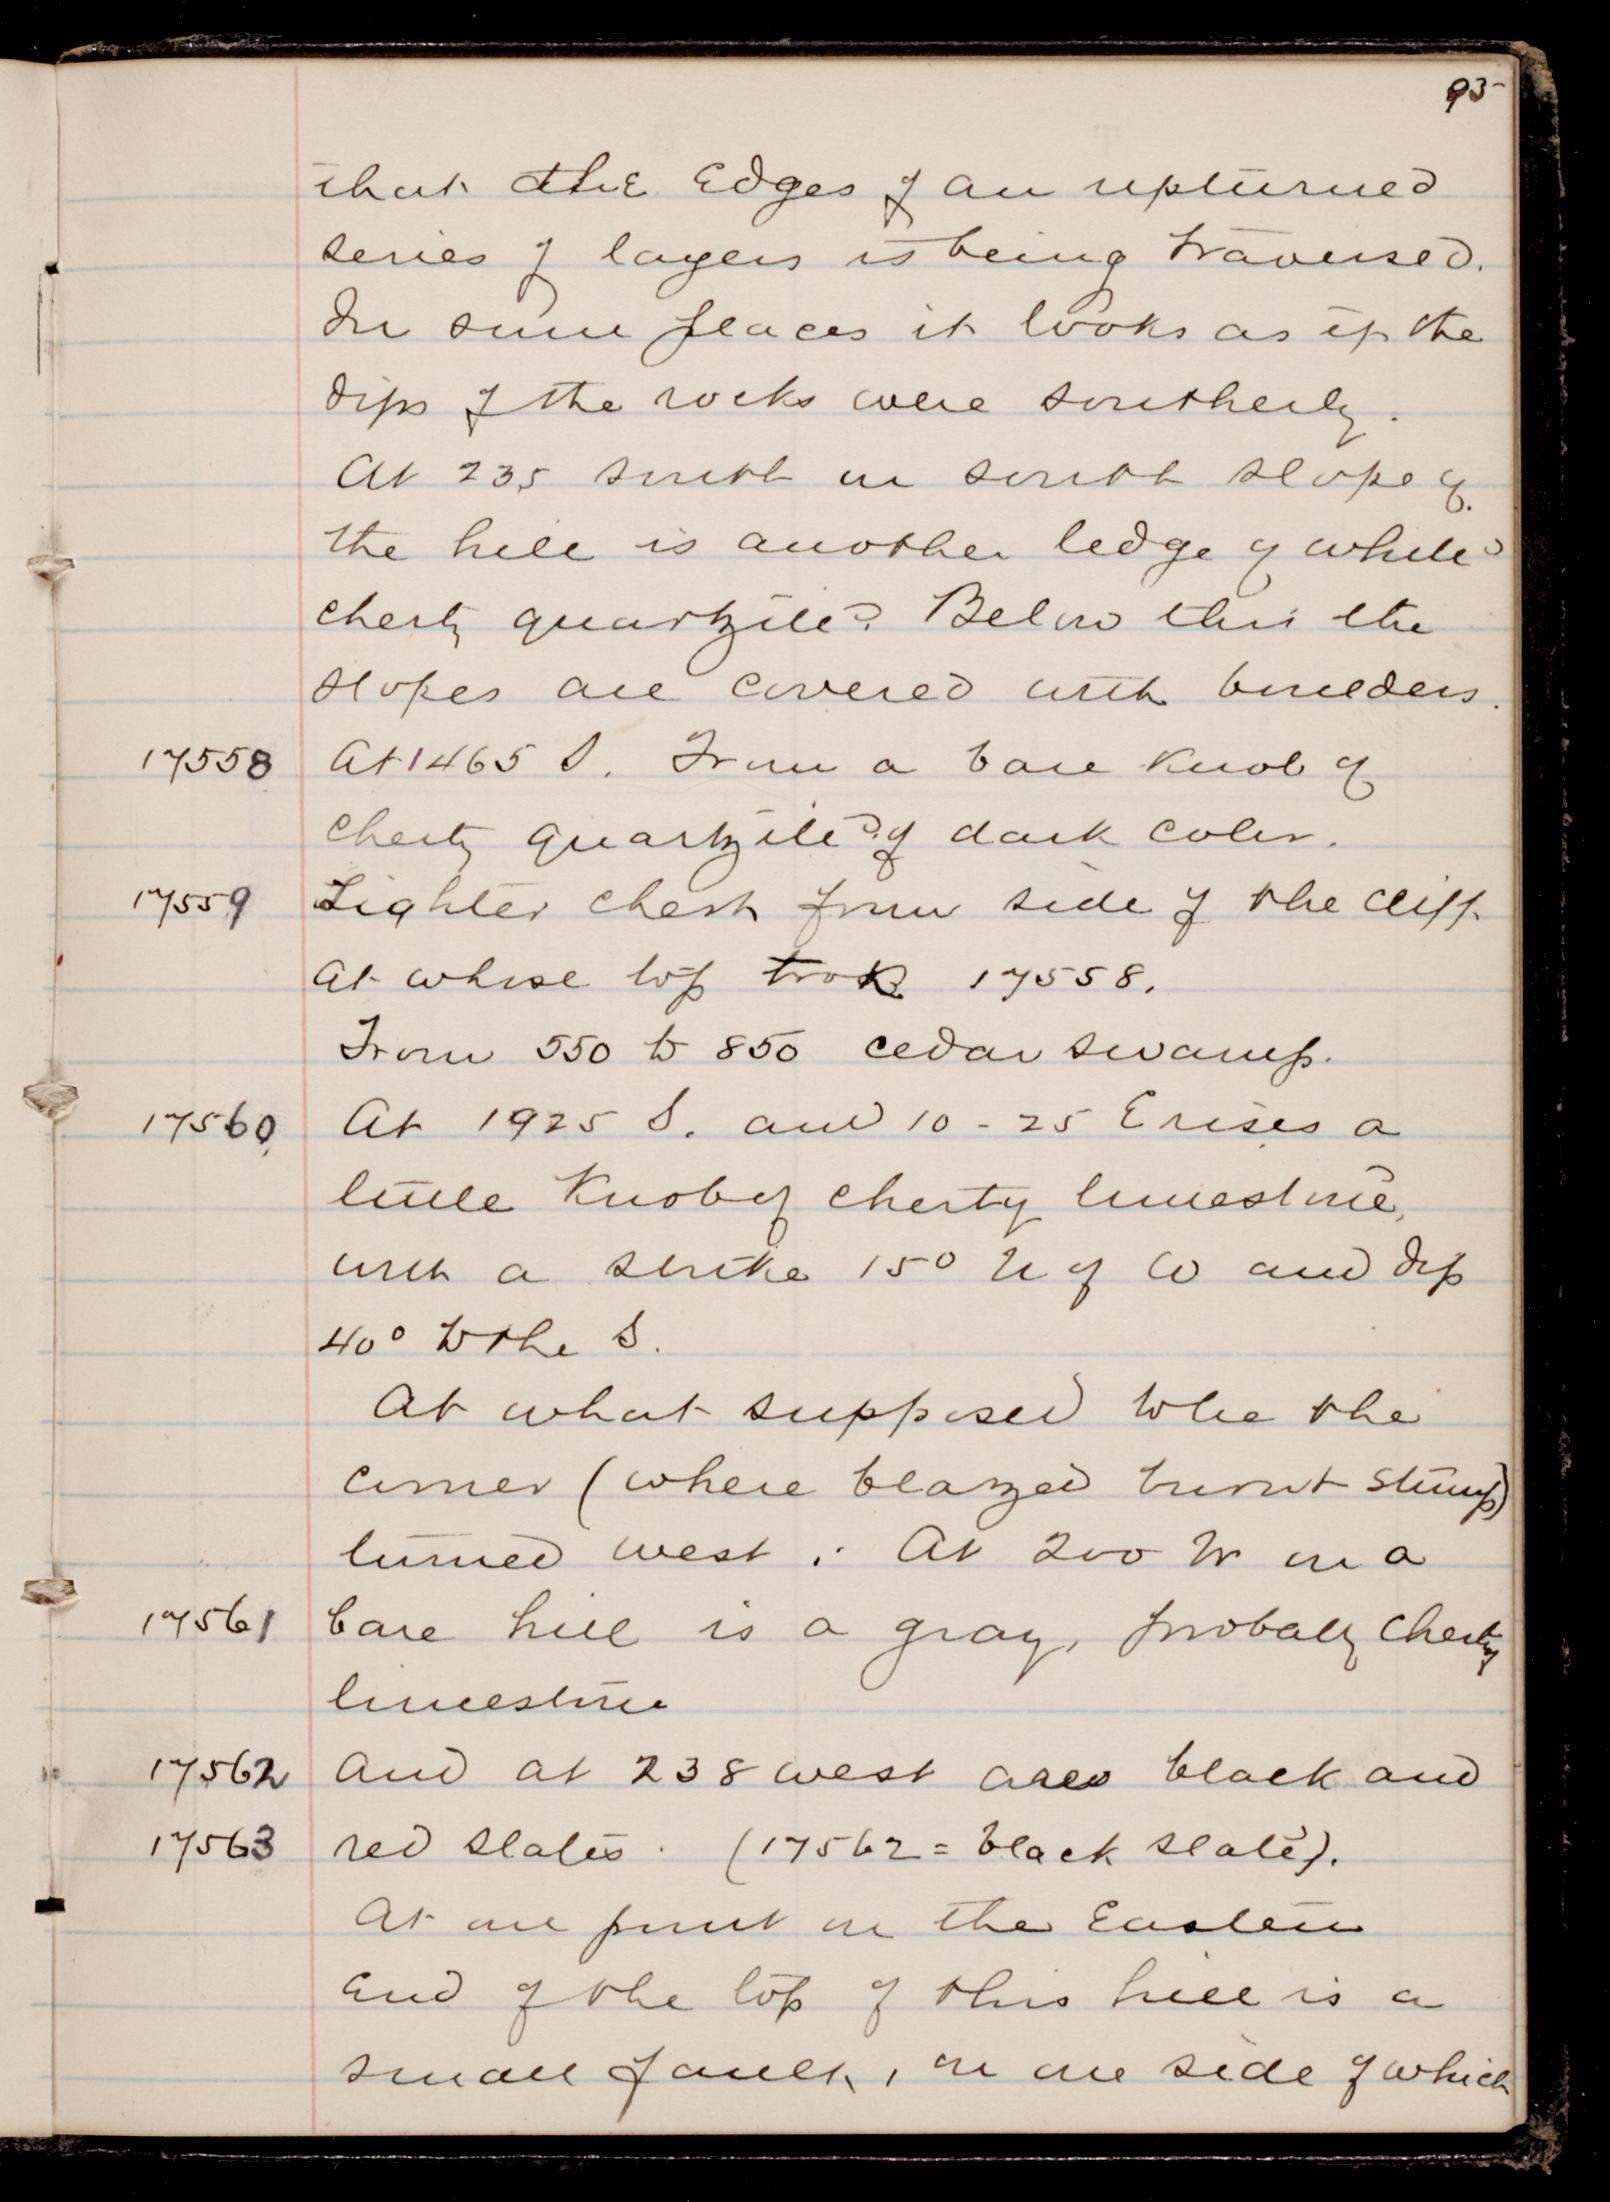 93
that the edges of an upturned
series of layers is being traversed.
In some places it looks as if the
dips of the rocks were southerly.
At 235 south on south slope of
the hill is another ledge of white
cherty quartzite. Below this the
slopes are covered with boulders.
17558 At 1465 S. From a bare knob of
cherty quartzite of dark color.
17559 Lighter chert from side of the cliff
at whose top took 17558.
From 550 to 850 cedar swamp.
17560 At 1925 S. and 10-25 E rises a
little knob of cherty limestone,
with a strike 15° N of W and dip
40° to the S.
At what supposed to be the
corner (where blazed burnt stump)
turned west. At 200 W on a
17561 bare hill is a gray, probally cherty
limestone
17562 and at 238 west are black and
17563 red slates. (17562 = black slate).
At one point on the eastern
end of the top of this hill is a
small fault, on one side of which